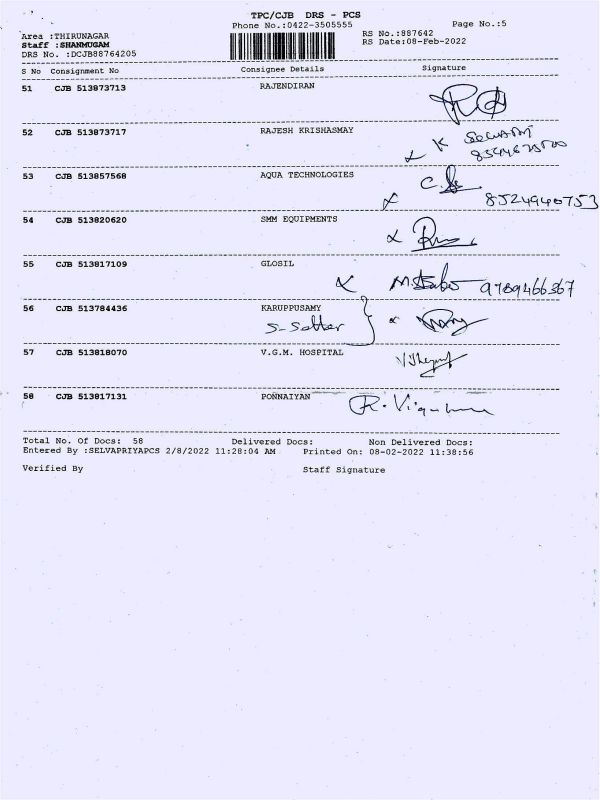 TPC/CJB DRS - PCS
Phone No.:0422-3505555
Page No.:5
Area :THIRUNAGAR
RS No.:887642
Staff :SHANMUGAM
RS Date:08-Feb-2022
DRS No. :DCJB88764205
S No Consignment No Consignee Details Signature
51 CJB 513873713 RAJENDIRAN
52 CJB 513873717 RAJESH KRISHASMAY
K
53 CJB 513857568 AQUA TECHNOLOGIES
8524940753
54 CJB 513820620 SMM EQUIPMENTS
55 CJB 513817109 GLOSIL
9789466367
56 CJB 513784436 KARUPPUSAMY
57 CJB 513818070 V.G.M. HOSPITAL
58 CJB 513817131 PONNAIYAN
Total No. Of Docs: 58 Delivered Docs: Non Delivered Docs:
Entered By :SELVAPRIYAPCS 2/8/2022 11:28:04 AM Printed On: 08-02-2022 11:38:56
Verified By Staff Signature